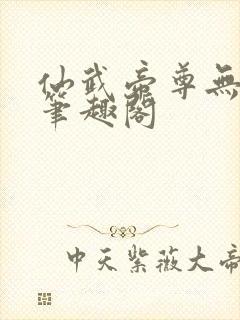 仙武帝尊無
筆趣閣
中天紫薇大帝